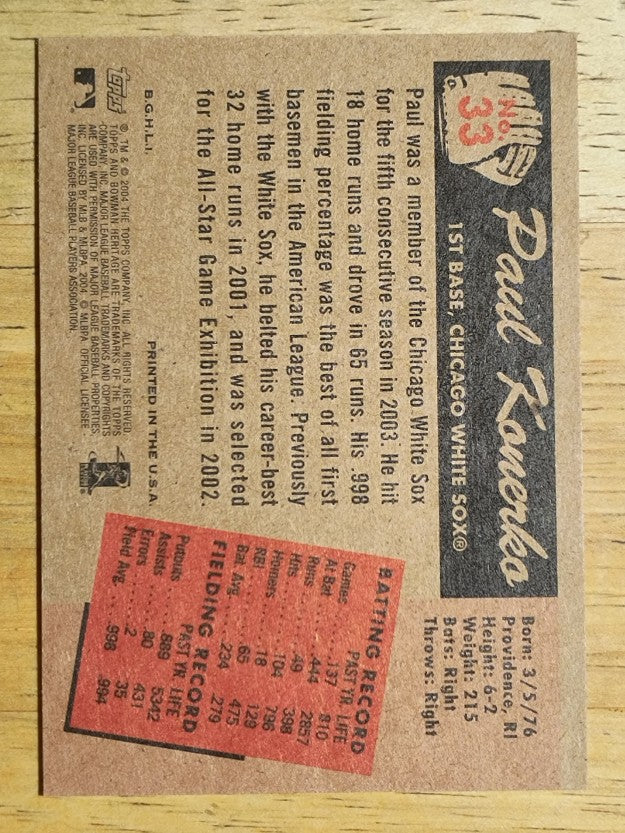 No.
33
Paul Konerko
1ST BASE, CHICAGO WHITE SOX®
Born: 3/5/76
Providence, RI
Height: 6-2
Weight: 215
Bats: Right
Throws: Right
Paul was a member of the Chicago White Sox
for the fifth consecutive season in 2003. He hit
18 home runs and drove in 65 runs. His .998
fielding percentage was the best of all first
basemen in the American League. Previously
with the White Sox, he belted his career-best
32 home runs in 2001, and was selected
for the All-Star Game Exhibition in 2002.
BATTING RECORD
PAST YR. LIFE
Games ..... 137 810
At Bat ..... 444 2857
Runs ..... 49 398
Hits ..... 104 796
Homers ..... 18 128
RBI ..... 65 475
Bat. Avg. ..... 234 279
FIELDING RECORD
PAST YR. LIFE
Putouts ..... 889 5342
Assists ..... 80 431
Errors ..... 2 35
Field Avg. .. .998 .994
B.G.H.L.I.
PRINTED IN THE U.S.A.
topps
®, ™ & © 2004 THE TOPPS COMPANY, INC. ALL RIGHTS RESERVED.
TOPPS AND BOWMAN HERITAGE ARE TRADEMARKS OF THE TOPPS
COMPANY, INC. MAJOR LEAGUE BASEBALL TRADEMARKS AND COPYRIGHTS
ARE USED WITH PERMISSION OF MAJOR LEAGUE BASEBALL PROPERTIES
INC. LICENSED BY MLB & MLBPA. 2004 © MLBPA OFFICIAL LICENSEE
MAJOR LEAGUE BASEBALL PLAYERS ASSOCIATION.